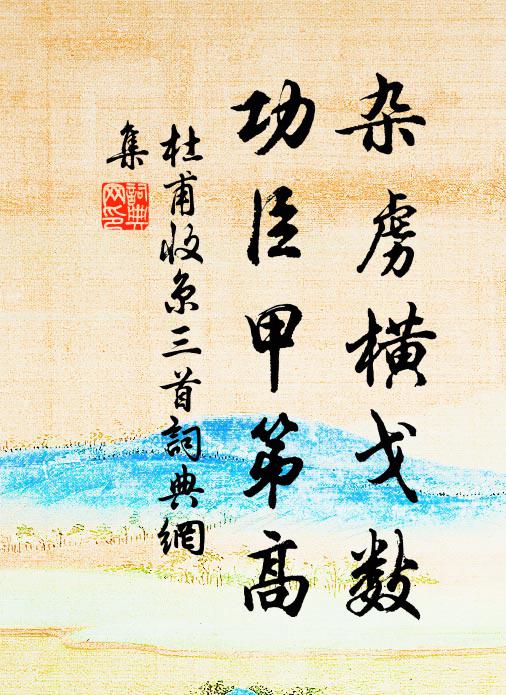 杂虏横戈数
功臣甲第高
杜甫收京三首詞典網
集
詞典網印